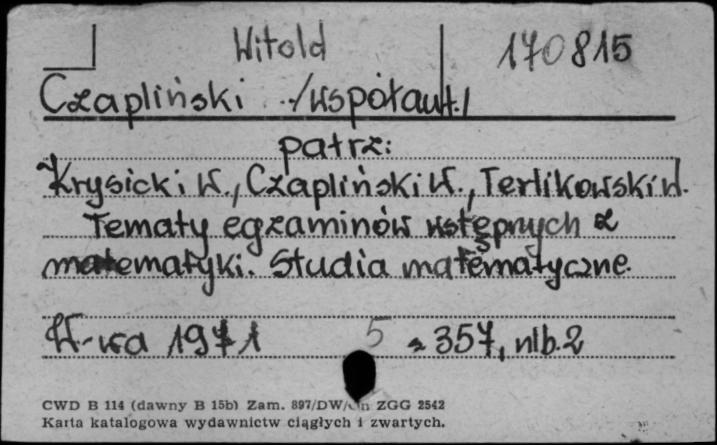 Witold 170815
Czapliński /współaut./
patrz:
Krysicki W., Czapliński W., Terlikowski W.
Tematy egzaminów wstępnych z
matematyki. Studia matematyczne.
W-wa 1971 5 s 357, nlb. 2
CWD B 114 (dawny B 15b) Zam. 897/DW/ ZGG 2542
Karta katalogowa wydawnictw ciągłych i zwartych.